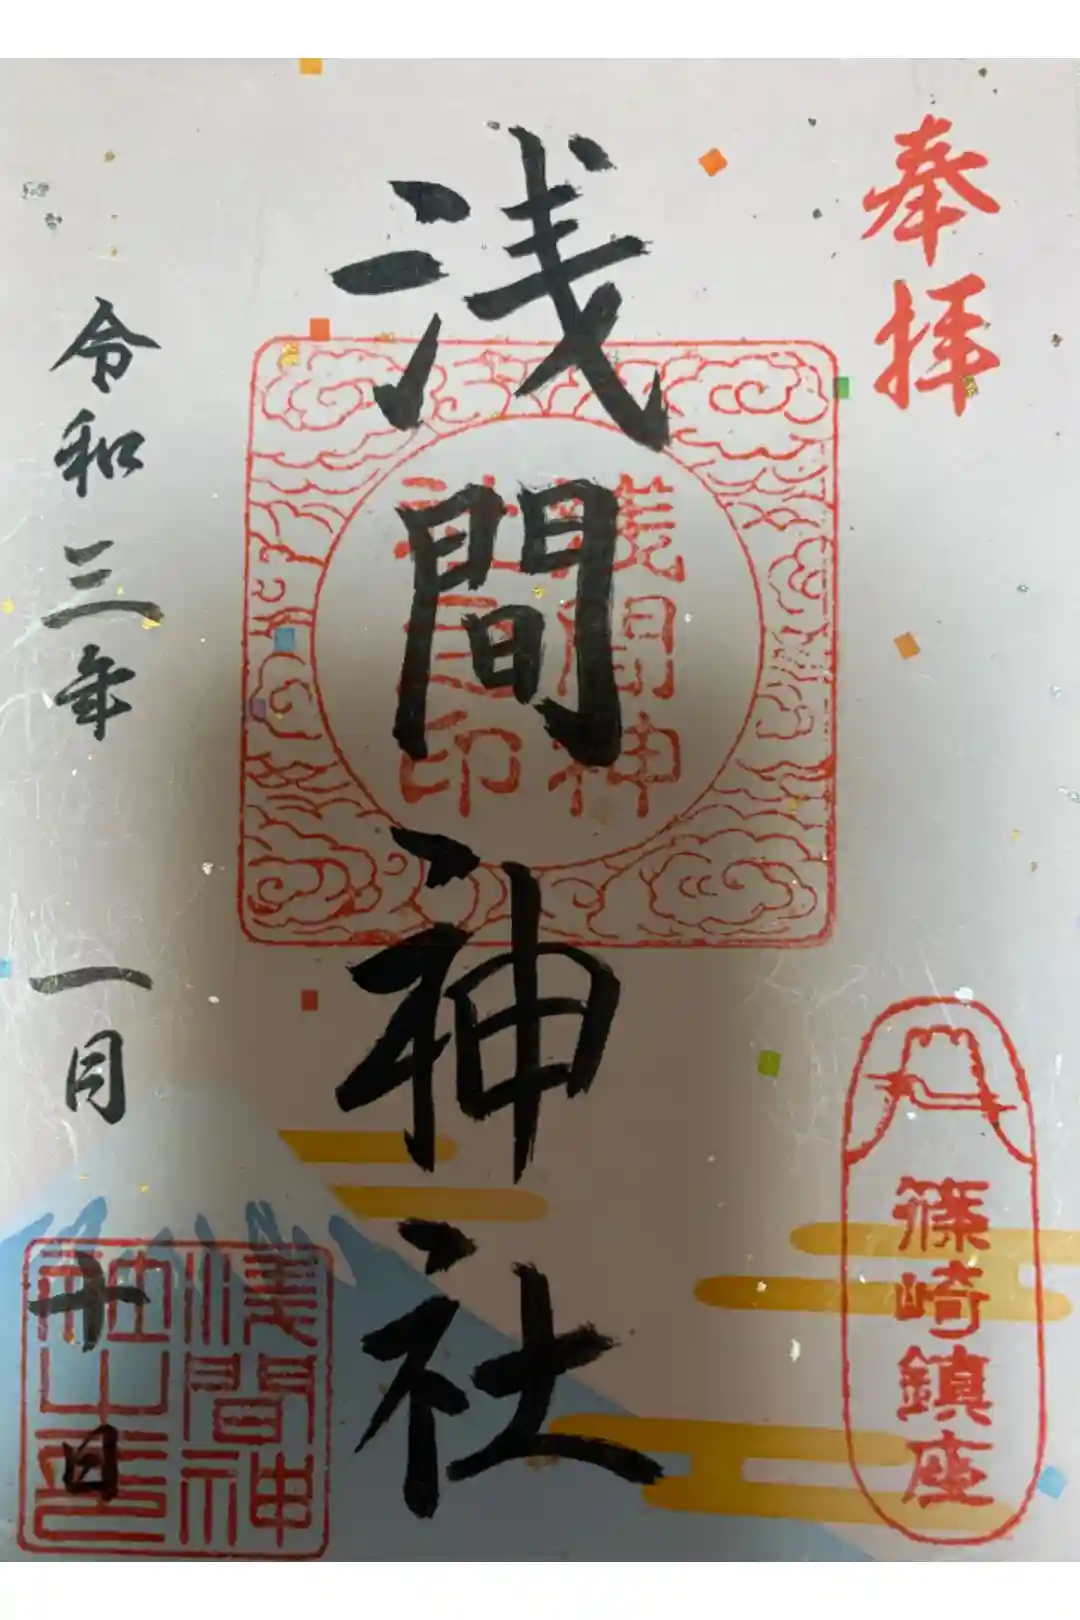 奉拝
篠崎鎮座
浅間神社
間神
社 印
令和三年 一月 十日
淺間神
社之印